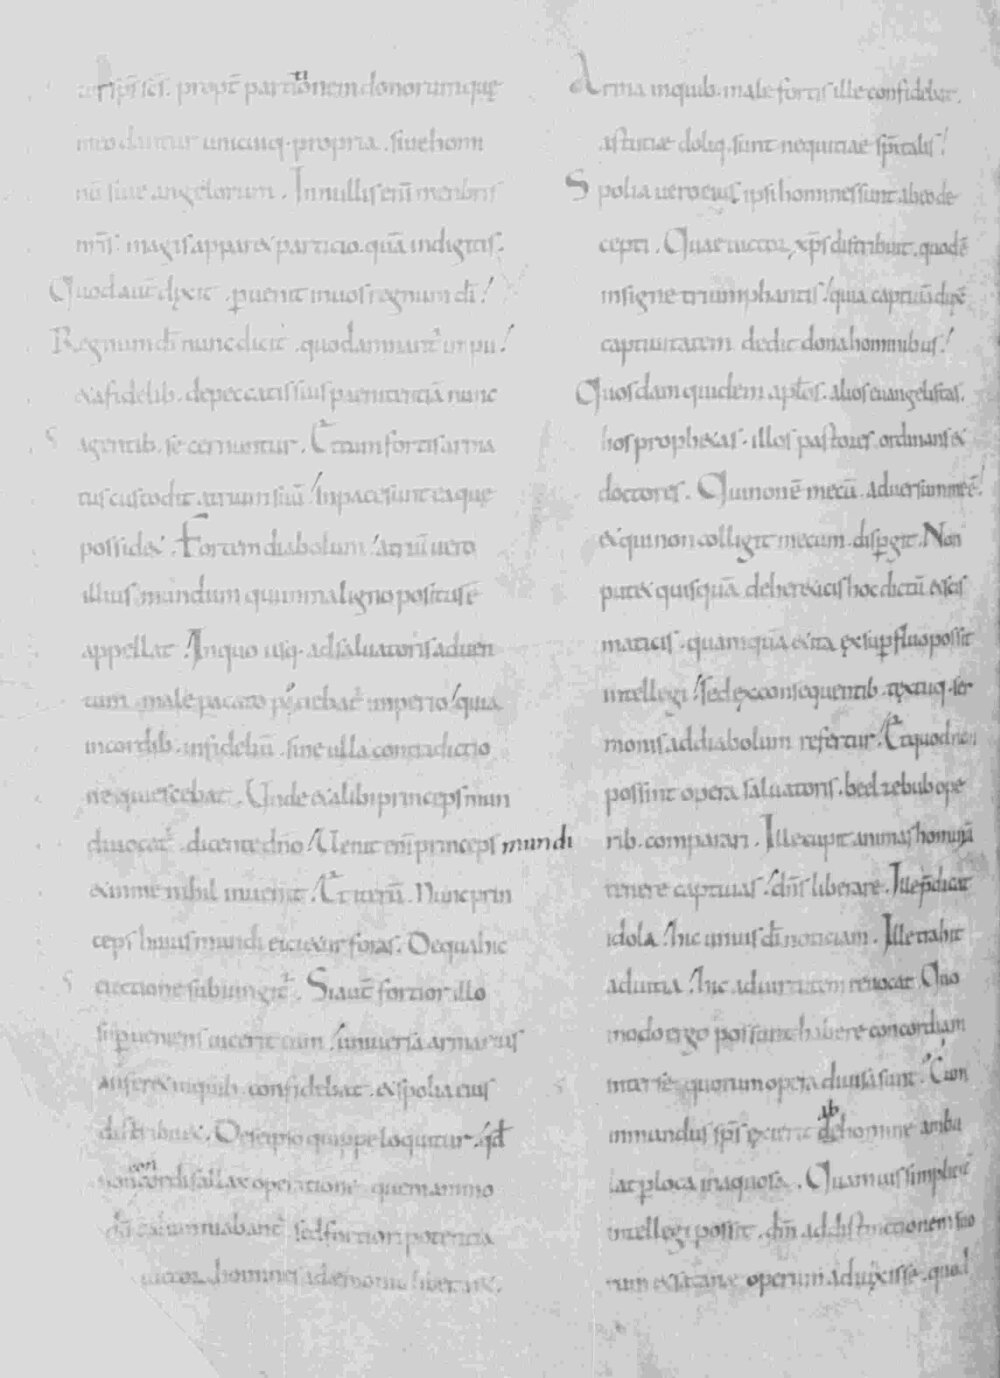 sps scs. propt partitionem donorumque
modantur unicuiq. propria. siue homi
nu siue angelorum. In nullis eni menbris
mis magis apparet particio. qua in digitis.
Quod aut dixit. puenit in uos regnum di!
Regnum di nunc dicit. quo damnant impii!
et a fidelib. de peccatis suis paenitentia nunc
agentib. se cernuntur. Et cum fortis arma
tus custodit atrium suu! In pace sunt ea que
possidet. Fortem diabolum! atriu uero
illius mundum qui in maligno positus e
appellat! In quo usq. ad saluatoris aduen
tum male pacato potiebat imperio! quia
in cordib. infideliu. sine ulla contradictio
ne quiescebat. Unde et alibi princeps mun
di uocat. dicente dno! Uenit eni princeps mundi
et in me nihil inuenit! Et iteru. Nunc prin
ceps huius mundi eicietur foras. De qua hic
eiectione subiungit. Si aut fortior illo
supueniens uicerit eum! uniuersa arma eius
auferet in quib. confidebat. et spolia eius
distribuet. De se ipso quippe loquitur! qd
non concordi fallax operatione quem ammo
du calumniabant sed fortiori potentia
uictor homines a daemonio liberaret.
Arma in quib. male fortis ille confidebat.
astutiae doliq. sunt nequitiae spitalis!
Spolia uero eius ipsi homines sunt ab eo de
cepti. Quae uictor xps distribuit. quod e
insigne triumphantis! quia captiua duxit
captiuitatem dedit dona hominibus!
Quosdam quidem aplos. alios euangelistas.
hos prophetas. illos pastores ordinans et
doctores. Qui non e mecu. aduersum me e!
et qui non colligit mecum. dispgit. Non
putet quisqua de hereticis hoc dictu et scis
maticis. quamqua et ita ex supfluo possit
intellegi! sed ex consequentib. textuq. ser
monis ad diabolum refertur! Et quod non
possint opera saluatoris. beelzebub ope
rib. comparari. Ille cupit animas hominu
tenere captiuas! dns liberare. Ille pdicat
idola! hic unius di noticiam. Ille trahit
ad uitia! hic ad uirtutem reuocat. Quo
modo ergo possunt habere concordiam
inter se quorum opera diuisa sunt. Cum
inmundus sps exierit de ab homine ambu
lat p loca inaquosa. Quamuis simplicit
intellegi possit. dnm ad distinctionem suo
rum et satanae operum aduixisse. quod